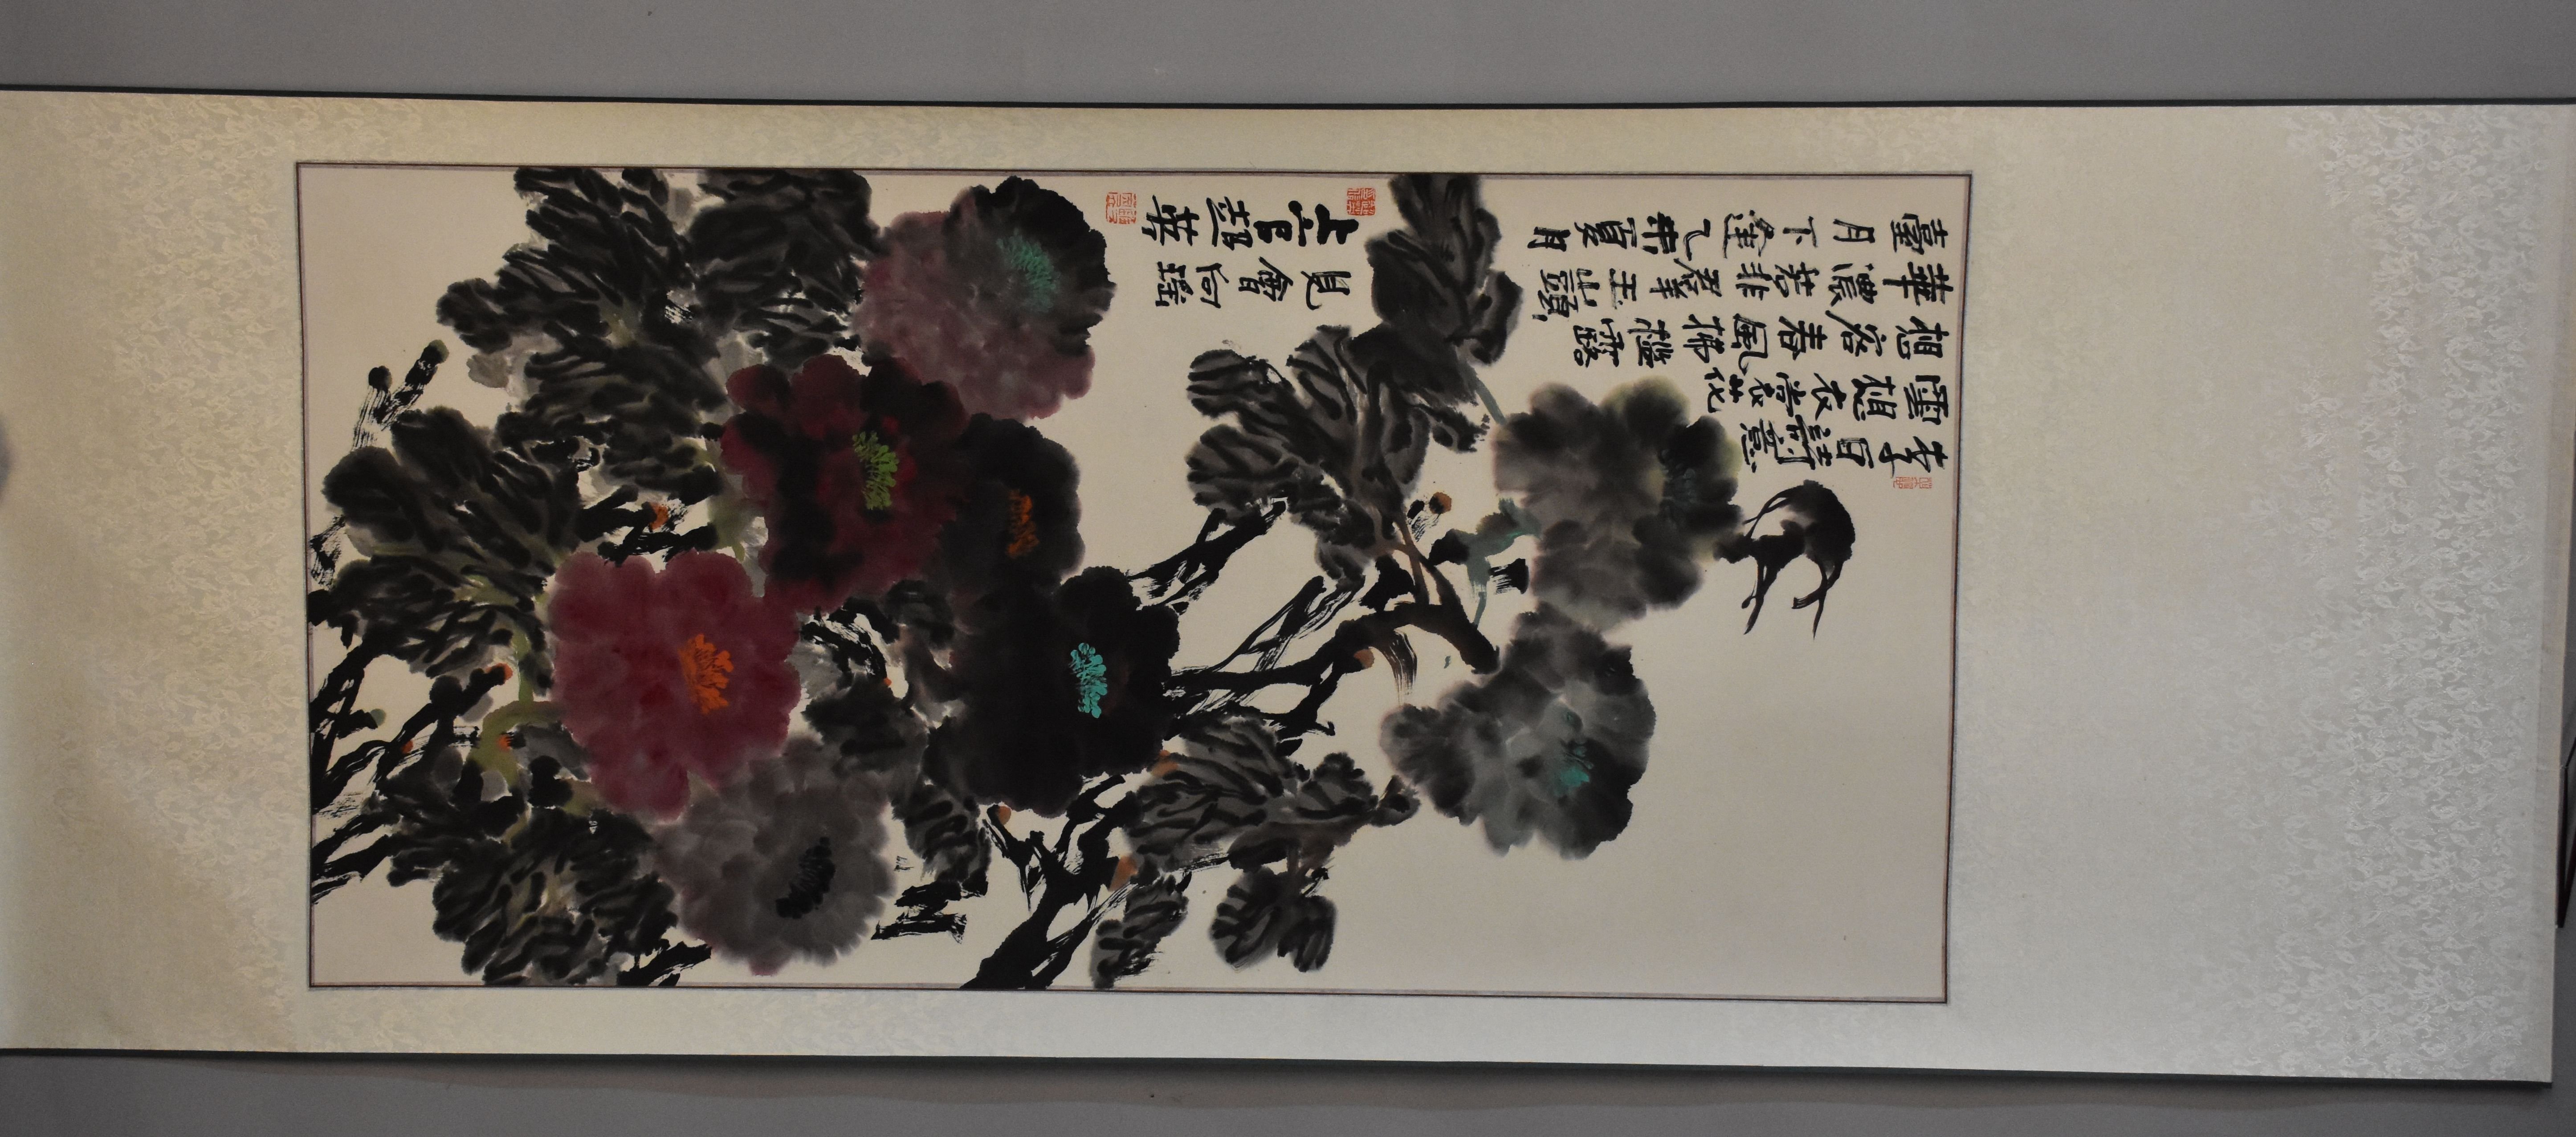 李白詩意
雲想衣裳花
想容春風拂檻露
華濃若非群玉山頭見會向瑤
臺月下逢 夏月上官超英